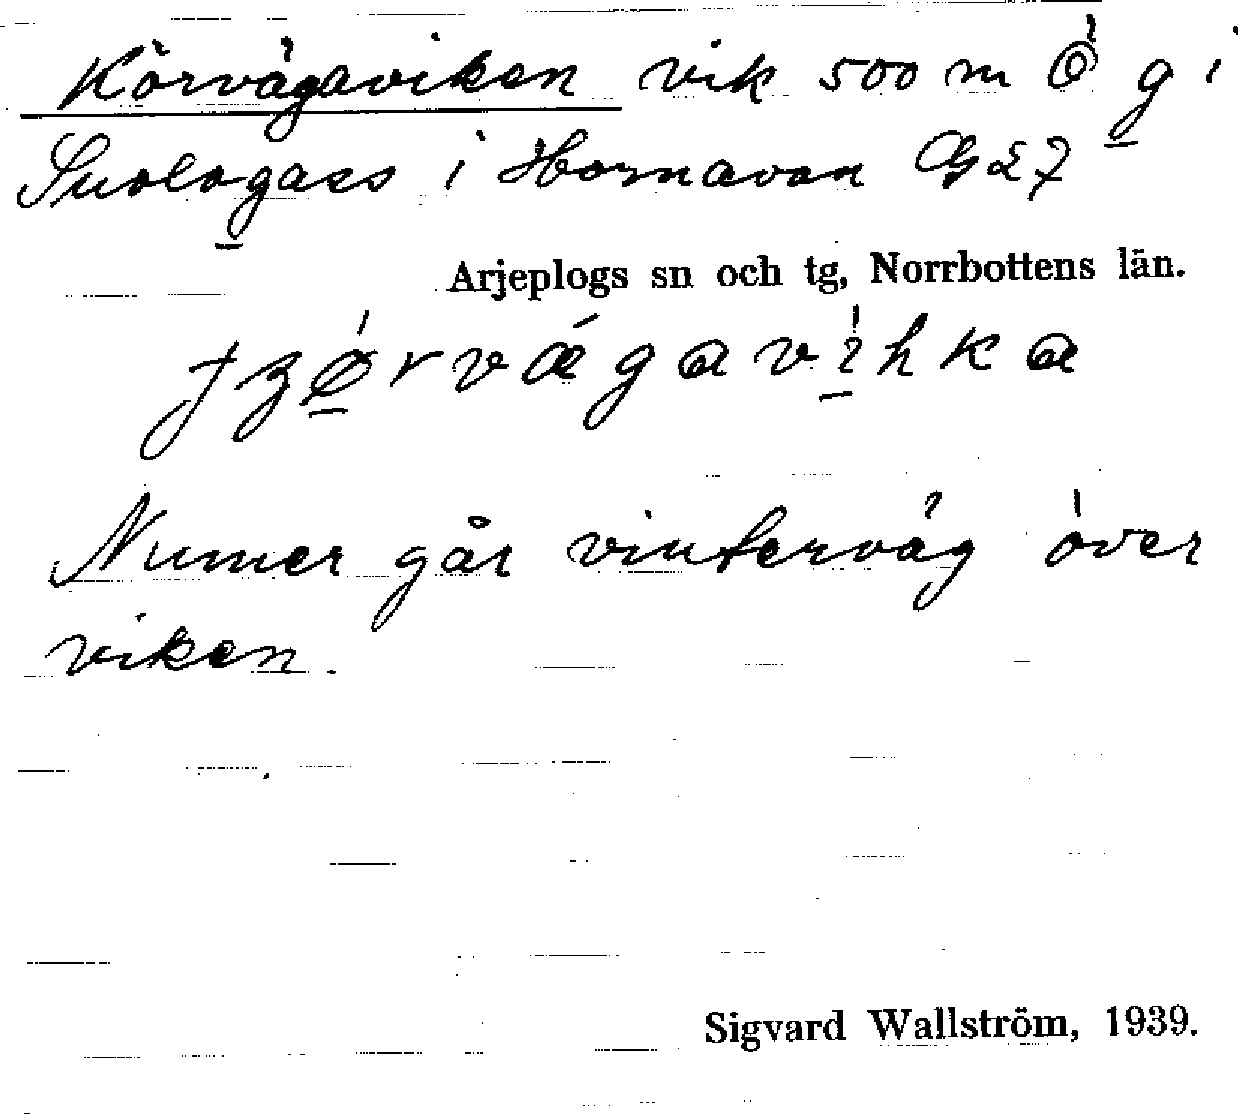 Körvägaviken vik 500 m Ö g i
Suologass i Hornavan G27
Arjeplogs sn och tg, Norrbottens län.
Numer går vinterväg över
viken.
Sigvard Wallström, 1939.